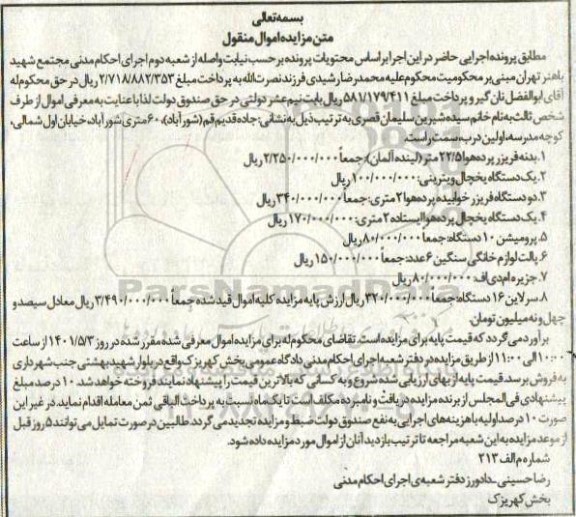 بسمه تعالی
متن مزایده اموال منقول
مطابق پرونده اجرایی حاضر در این اجرا بر اساس محتویات پرونده بر حسب نیابت واصله از شعبه دوم اجرای احکام مدنی مجتمع شهید
باهنر تهران مبنی بر محکومیت محکوم علیه محمدرضا رشیدی فرزند نصرت الله به پرداخت مبلغ ۲/۷۱۸/۸۸۲/۳۵۳ ریال در حق محکوم له
آقای ابوالفضل نان گیر و پرداخت مبلغ ۵۸۷/۱۷۹/۴۱۱ ریال بابت نیم عشر دولتی در حق صندوق دولت لذا با عنایت به معرفی اموال از طرف
شخص ثالث به نام خانم سیده شیرین سلیمان قصری به ترتیب ذیل به نشانی: جاده قدیم قم (شورآباد)، ۶۰متری شورآباد، خیابان اول شمالی،
کوچه مدرسه، اولین درب سمت راست.
۱. بدنه فریزر پرده هوا ۲۲/۵ متر (لینده آلمان): جمعاً ۲/۲۵۰/۰۰۰/۰۰۰ ریال
۲. یک دستگاه یخچال ویترینی: ۱۰۰/۰۰۰/۰۰۰ ریال
۳. دو دستگاه فریزر خوابیده پرده هوا ۲ متری: جمعاً ۳۴۰/۰۰۰/۰۰۰ ریال
۴. یک دستگاه یخچال پرده هوا ایستاده ۲ متری: ۱۷۰/۰۰۰/۰۰۰ ریال
۵. پرومیشن ۱۰ دستگاه: جمعاً ۸۰/۰۰۰/۰۰۰ ریال
۶. پالت لوازم خانگی سنگین ۶ عدد: جمعاً ۱۵۰/۰۰۰/۰۰۰ ریال
۷. جزیره ام دی اف: ۸۰/۰۰۰/۰۰۰ ریال
۸. سرلاین ۱۶ دستگاه: جمعاً ۳۲۰/۰۰۰/۰۰۰ ریال ارزش پایه مزایده کلیه اموال قید شده جمعاً ۳/۴۹۰/۰۰۰/۰۰۰ ریال معادل سیصد و
چهل و نه میلیون تومان.
برآورد می گردد که قیمت پایه برای مزایده است. تقاضای محکوم له برای مزایده اموال معرفی شده مقرر شده در روز ۱۴۰۱/۵/۳ از ساعت
۱۰:۰۰ الی ۱۱:۰۰ از طریق مزایده در دفتر شعبه اجرای احکام مدنی دادگاه عمومی بخش کهریزک واقع در بلوار شهید بهشتی جنب شهرداری
به فروش برسد. قیمت پایه از بهای ارزیابی شده شروع و به کسانی که بالاترین قیمت را پیشنهاد نمایند فروخته خواهد شد. ۱۰ درصد مبلغ
پیشنهادی فی المجلس از برنده مزایده دریافت و نامبرده مکلف است تا یک ماه نسبت به پرداخت الباقی ثمن معامله اقدام نماید. در غیر این
صورت ۱۰ درصد اولیه با هزینه های اجرایی به نفع صندوق دولت ضبط و مزایده تجدید می گردد. طالبین در صورت تمایل می توانند ۵ روز قبل
از موعد مزایده به این شعبه مراجعه تا ترتیب بازدید آنان از اموال مورد مزایده داده شود.
شماره م الف ۲۱۳
رضا حسینی ـ دادورز دفتر شعبه ی اجرای احکام مدنی
بخش کهریزک
ParsNamadData